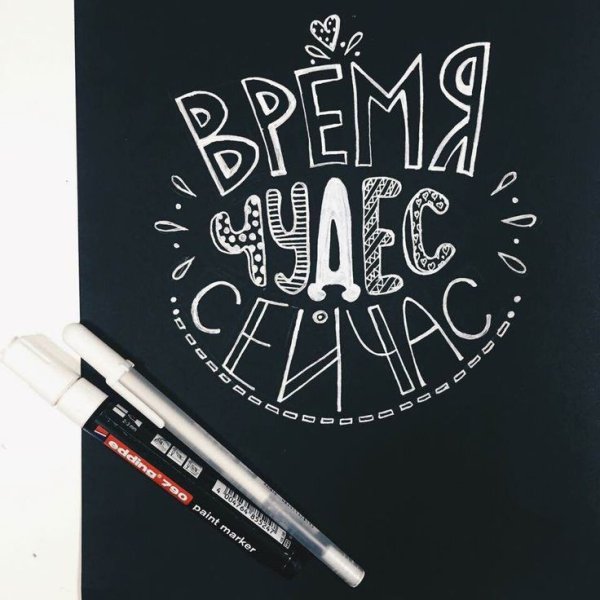 ВРЕМЯ
ЧУДЕС
СЕЙЧАС
edding® 790
paint marker